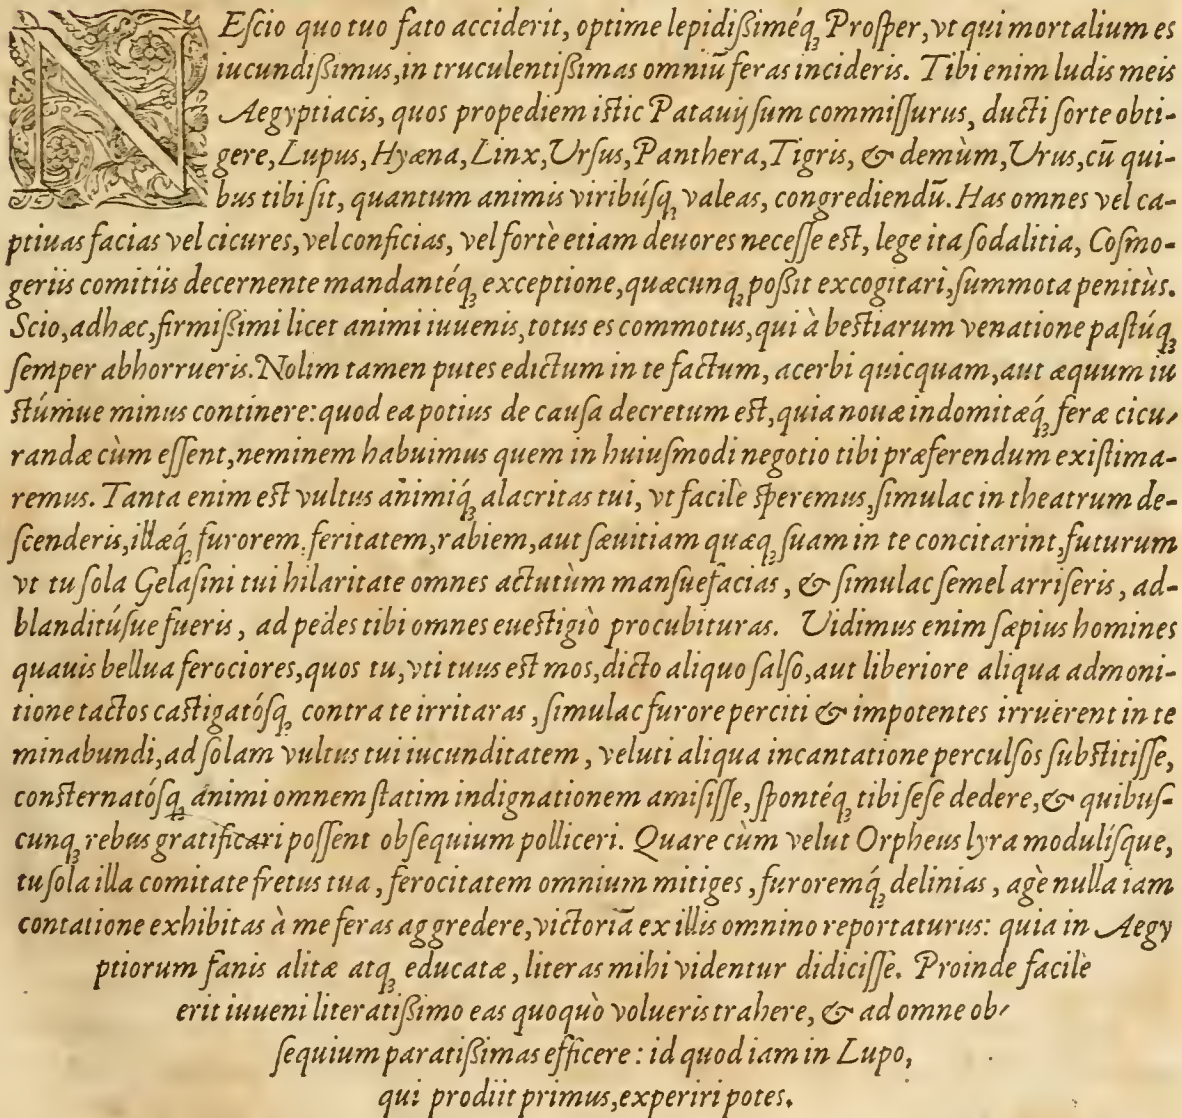 NEſcio quo tuo fato acciderit, optime lepidiſsiméq́ꝫ Proſper, vt qui mortalium es
iucundiſsimus, in truculentiſsimas omniū feras incideris. Tibi enim ludis meis
Aegyptiacis, quos propediem iſtic Patauij ſum commiſſurus, ducti ſorte obti-
gere, Lupus, Hyæna, Linx, Urſus, Panthera, Tigris, & demùm, Urus, cū qui-
bus tibi ſit, quantum animis viribúſqꝫ valeas, congrediendū. Has omnes vel ca-
ptiuas facias vel cicures, vel conficias, vel fortè etiam deuores neceſſe eſt, lege ita ſodalitia, Coſmo-
geriis comitiis decernente mandantéqꝫ exceptione, quæcunqꝫ poſsit excogitari, ſummota penitùs.
Scio, adhæc, firmiſsimi licet animi iuuenis, totus es commotus, qui à beſtiarum venatione paſtúqꝫ
ſemper abhorrueris. Nolim tamen putes edictum in te factum, acerbi quicquam, aut æquum iu
ſtúmue minus continere: quod ea potius de cauſa decretum eſt, quia nouæ indomitæq́ꝫ feræ cicu-
randæ cùm eſſent, neminem habuimus quem in huiuſmodi negotio tibi præferendum exiſtima-
remus. Tanta enim eſt vultus animiq́ꝫ alacritas tui, vt facilè ſperemus, ſimulac in theatrum de-
ſcenderis, illæq́ꝫ furorem, feritatem, rabiem, aut ſæuitiam quæqꝫ ſuam in te concitarint, futurum
vt tu ſola Gelaſini tui hilaritate omnes actutùm manſuefacias, & ſimulac ſemel arriſeris, ad-
blanditúſue fueris, ad pedes tibi omnes eueſtigiò procubituras. Uidimus enim ſæpius homines
quauis bellua ferociores, quos tu, vti tuus eſt mos, dicto aliquo ſalſo, aut liberiore aliqua admoni-
tione tactos caſtigatóſqꝫ contra te irritaras, ſimulac furore perciti & impotentes irruerent in te
minabundi, ad ſolam vultus tui iucunditatem, veluti aliqua incantatione perculſos ſubſtitiſſe,
conſternatóſqꝫ animi omnem ſtatim indignationem amiſiſſe, ſpontéqꝫ tibi ſeſe dedere, & quibuſ-
cunqꝫ rebus gratificari poſſent obſequium polliceri. Quare cùm velut Orpheus lyra modulíſque,
tu ſola illa comitate fretus tua, ferocitatem omnium mitiges, furoremq́ꝫ delinias, agè nulla iam
contatione exhibitas à me feras aggredere, victoriā ex illis omnino reportaturus: quia in Aegy
ptiorum fanis alitæ atqꝫ educatæ, literas mihi videntur didiciſſe. Proinde facilè
erit iuueni literatiſsimo eas quoquò volueris trahere, & ad omne ob-
ſequium paratiſsimas efficere: id quod iam in Lupo,
qui prodiit primus, experiri potes.